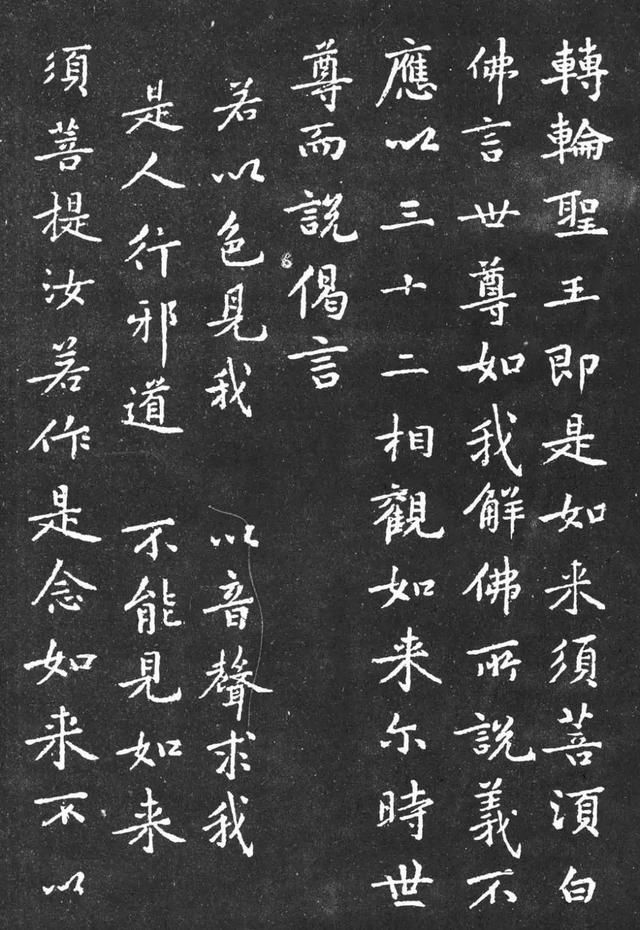 轉輪聖王即是如来須菩湏白
佛言世尊如我解佛所說義不
應以三十二相觀如来尓時世
尊而說偈言
若以色見我 以音聲求我
是人行邪道 不能見如来
須菩提汝若作是念如来不以